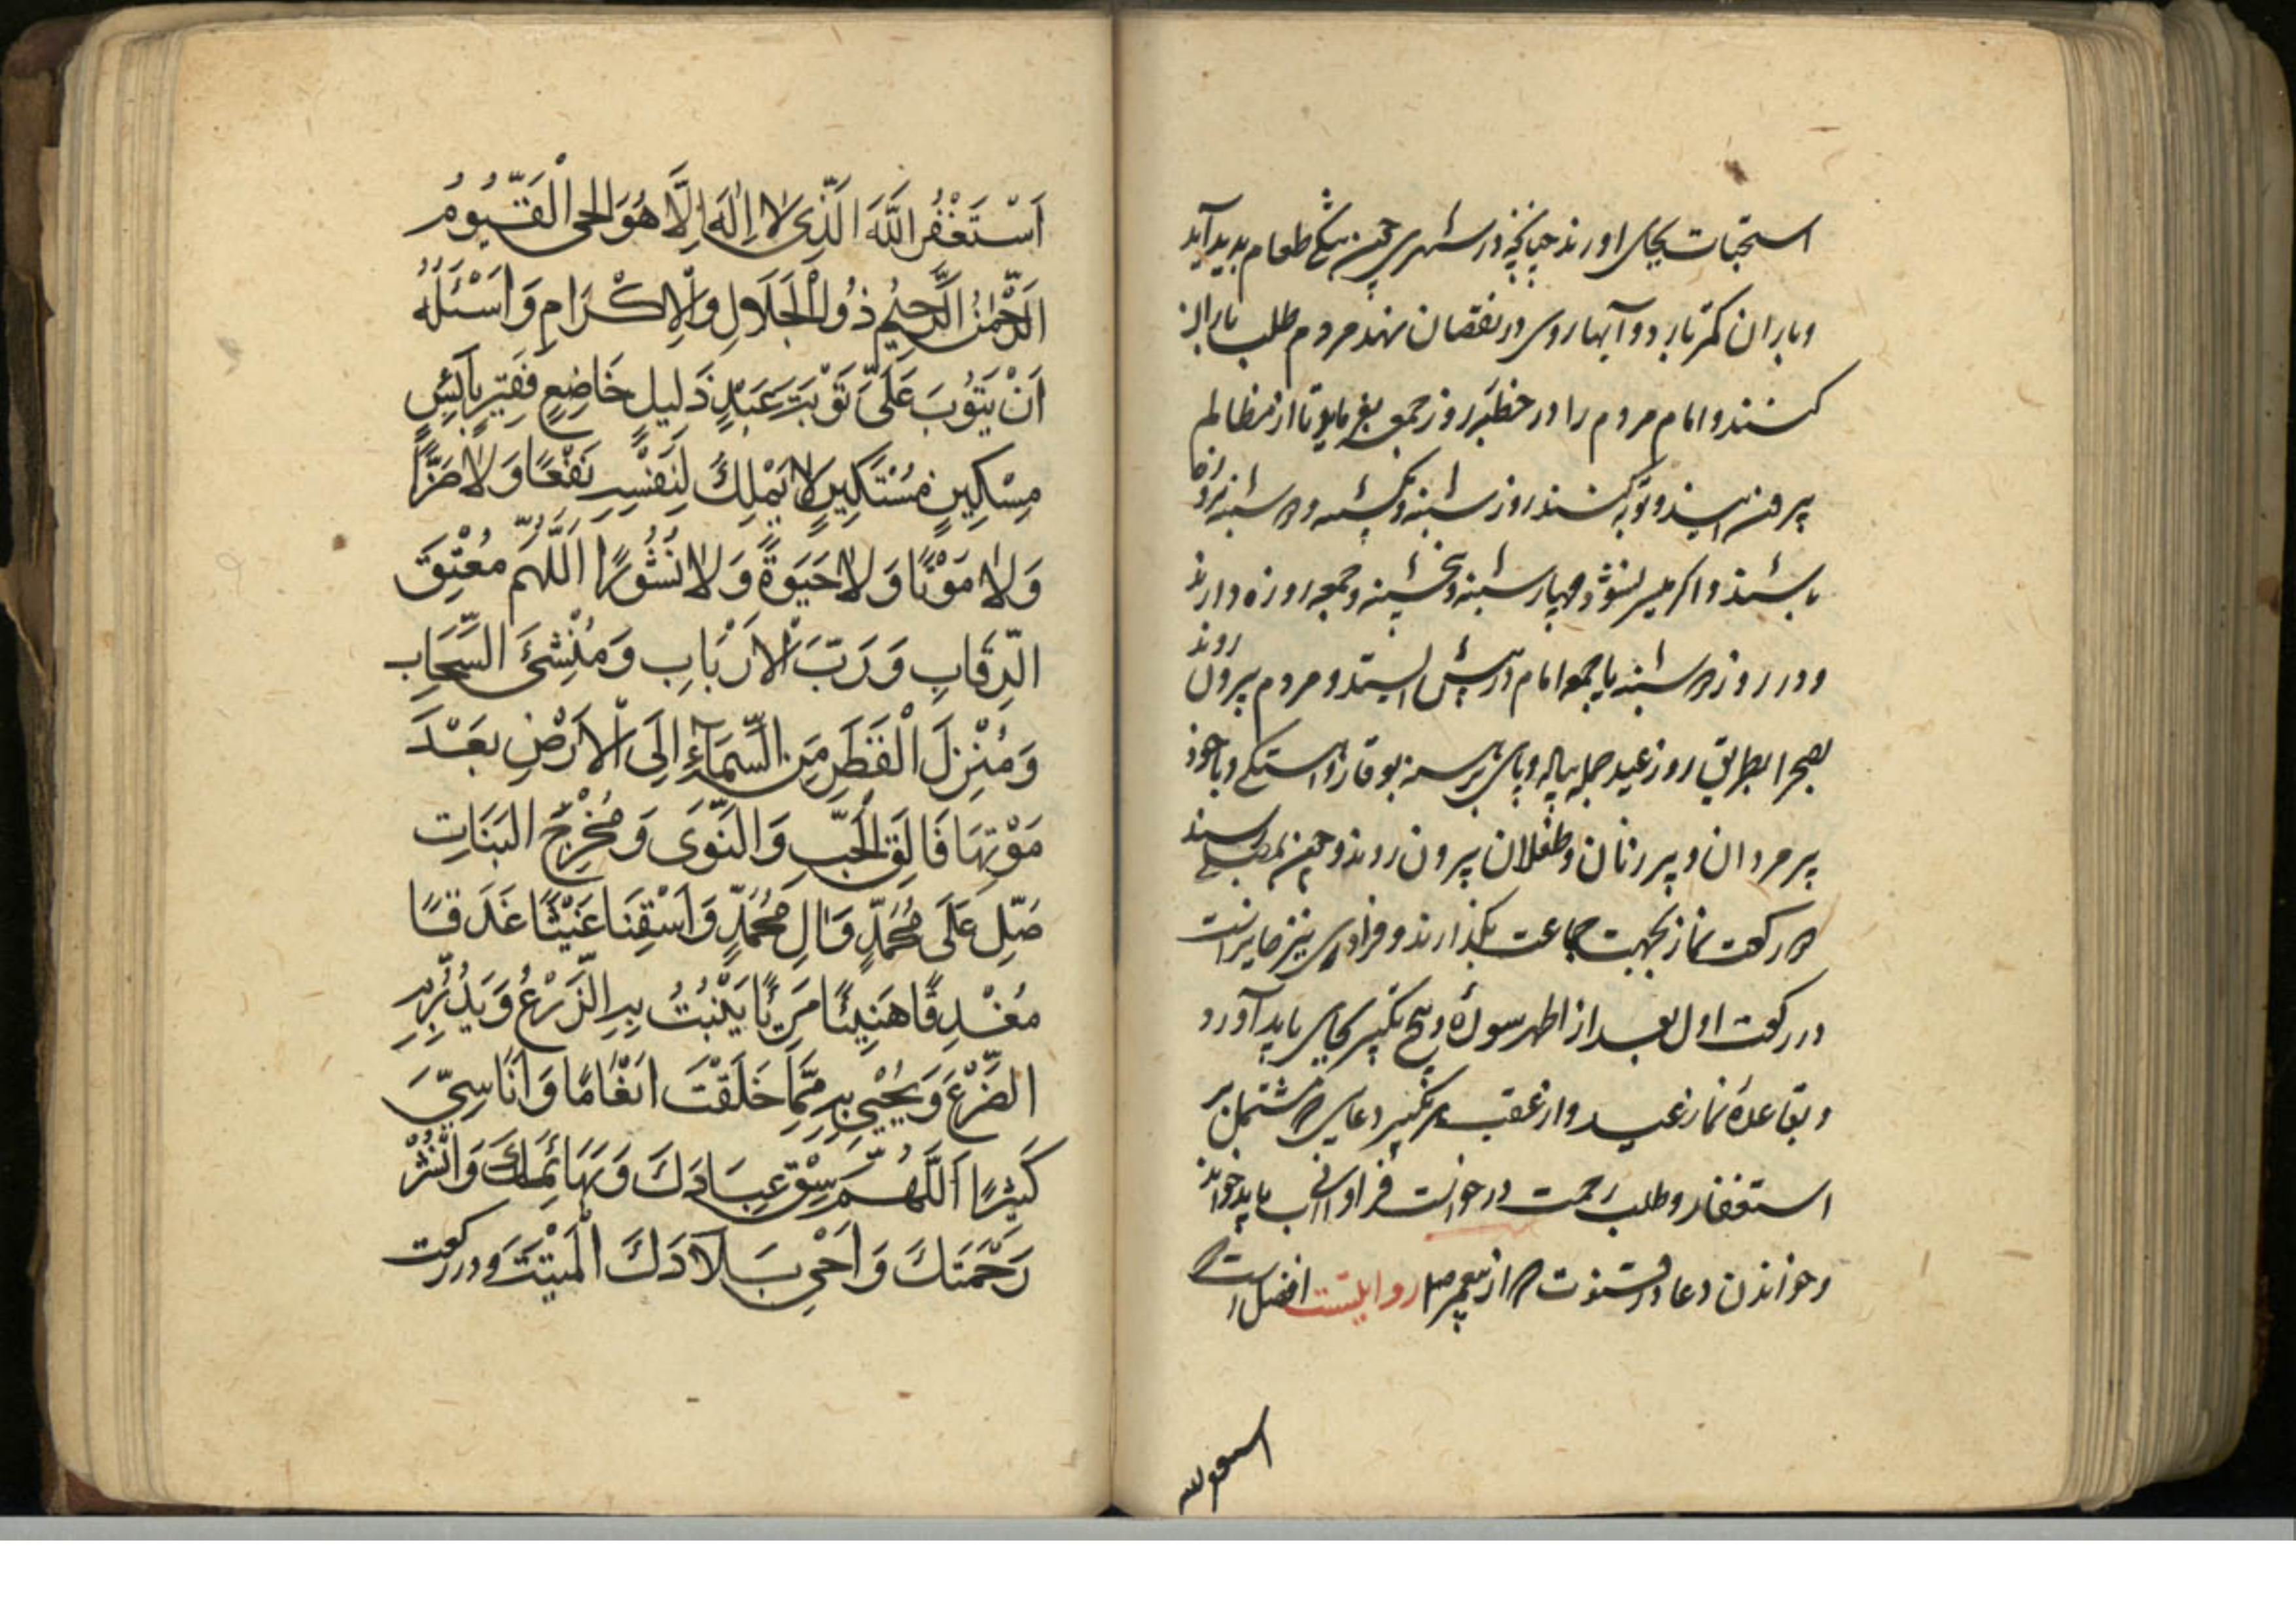 استحبات بجای اورند چنانچه در شهری چون تنکی طعام پدید آید
و باران کمتر بارد و آبها روی در نقصان نهند مردم طلب باران
کنند و امام مردم را در خطبه روز جمعه بفرماید تا از مظالم
بیرون آیند و توبه کنند روز شنبه و یکشنبه و دوشنبه بروزه
باشند و اکر میسر نشود چهارشنبه و پنجشنبه و جمعه روزه دارند
و در روز دوشنبه یا جمعه امام در پیش ایستد و مردم بیرون روند
بصحرا بطریق روز عید جمله پیاده و پای برهنه بوقار و آهستکی و با خود
پیر مردان و پیر زنان و طفلان بیرون روند و چون بمصلی رسند
دو رکعت نماز بجهت جماعت بکذارند و فرادی نیز جایز است
در رکعت اول بعد از اظهر سوره پنج تکبیر بجای باید آورد
و بقاعده نماز عید و از عقب هر تکبیر دعایی که مشتمل بر
استغفار و طلب رحمت و درخواست فراوانی آب باید خواند
و خواندن دعا در قنوت که از پیغمبر صلم روایتست افضل است
استغفر الله
اَسْتَغْفُرُ اللّٰهَ الَّذِی لا اِلٰهَ اِلَّا هُوَ الحی الْقَیُّومُ
الرَّحْمٰنُ الرَّحِیْمُ ذُو الْجَلَالِ وَالْاِکْرَامِ وَ اَسْئَلُهُ
اَنْ یَتُوْبَ عَلَیَّ تَوْبَتَ عَبْدٍ ذَلِیلٍ خَاضِعٍ فَقِیرٍ بَائِسٍ
مِسْکِیْنٍ مُسْتَکِیْنٍ لَا یَمْلِكُ لِنَفْسِهِ نَفْعًا وَ لَا ضَرًّا
وَ لَا مَوْتًا وَ لَا حَیٰوةً وَ لَا نُشُوْرًا اَللّٰهُمَّ مُعْتِقَ
الرِّقَابِ وَ رَبَّ الْاَرْبَابِ وَ مُنْشِئَ السَّحَابِ
وَ مُنْزِلَ الْقَطَرِ مِنَ السَّمَآءِ اِلَی الْاَرْضِ بَعْدَ
مَوْتِهَا فَالِقَ الْحَبِّ وَ النَّوَی وَ مُخْرِجَ النَبَاتِ
صَلِّ عَلَی مُحَمَّدٍ وَ اٰلِ مُحَمَّدٍ وَ اَسْقِنَا غَیْثًا غَدَقًا
مُغْدِقًا هَنِیئًا مَرِیْئًا یَنْبُتُ بِهِ الزَّرْعُ وَ یَدُرُّ بِهِ
الضَّرْعَ وَ یُحْیِی بِهِ مِمَّا خَلَقْتَ اَنْعَامًا وَ اَنَاسِیَّ
کَثِیْرًا اَللّٰهُمَّ سِقِ عِبَادَكَ وَ بَهَائِمَكَ وَ انْشُرْ
رَحْمَتَكَ وَ اَحْیِ بِلَادَكَ الْمَیْتَتَ و در رکعت